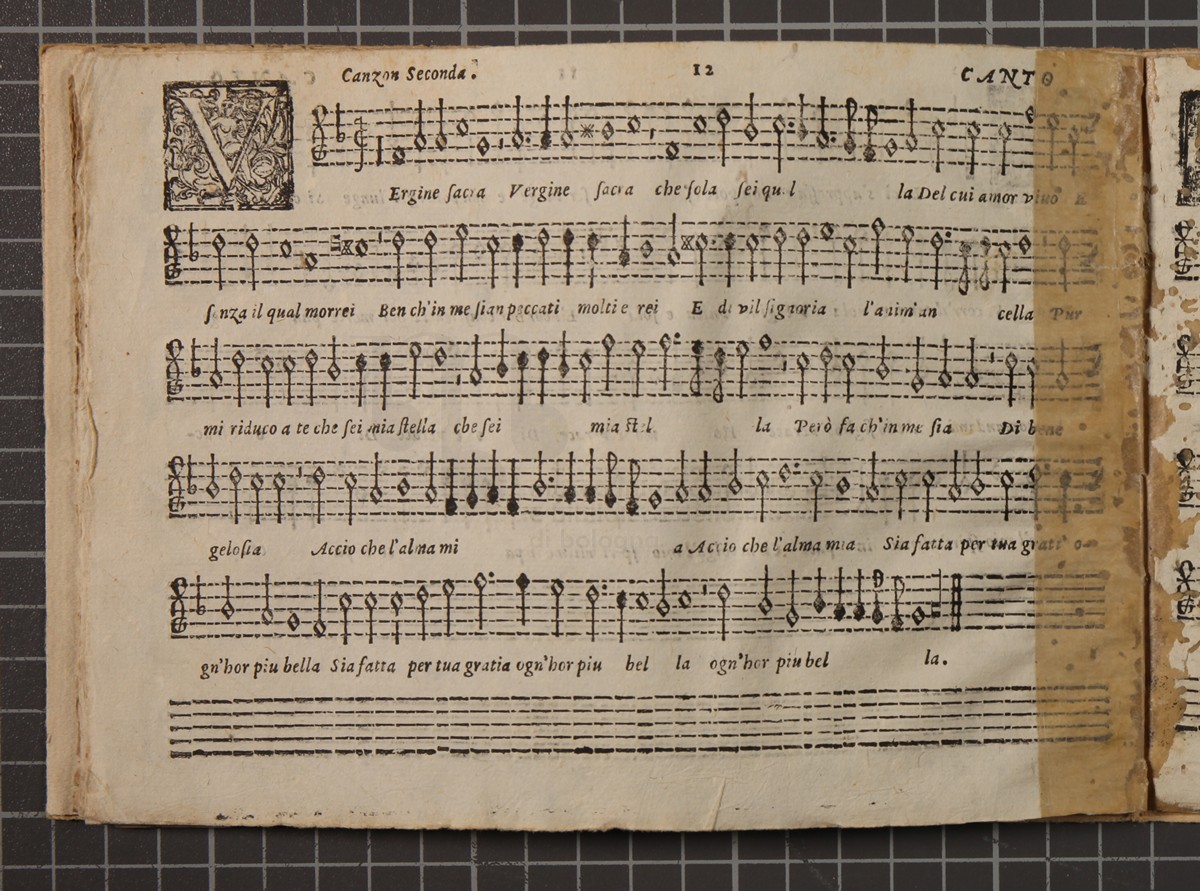 Canzon Seconda. 12 CANTO
VErgine sacra Vergine sacra che sola sei qu l la Del cui amor vivo E
s nza il qual morrei Ben ch'in me sian peccati molti e rei E di vil signoria l'anim'an cella Pur
mi riduco a te che sei mia stella che sei mia st l la Però fa ch'in me sia Di bene
gelosia Accio che l'alma mi a Accio che l'alma mia Sia fatta per tua grati' o-
gn'hor piu bella Sia fatta per tua gratia ogn'hor piu bel la ogn'hor piu bel la.